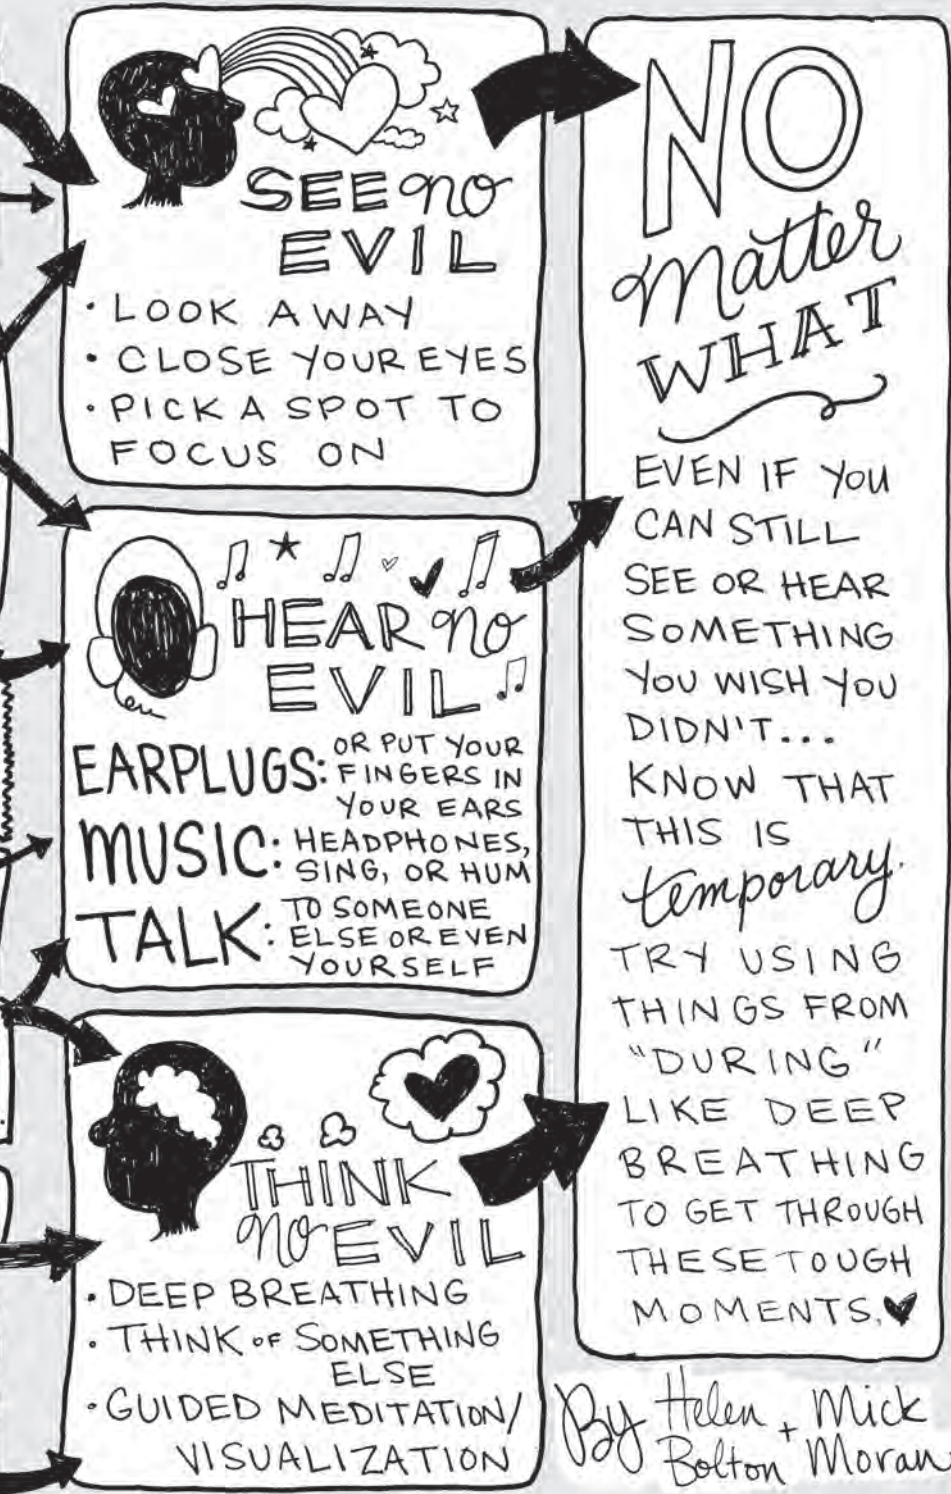 SEE no
EVIL
· LOOK AWAY
· CLOSE YOUR EYES
· PICK A SPOT TO
FOCUS ON
HEAR no
EVIL
EARPLUGS: OR PUT YOUR
FINGERS IN
YOUR EARS
MUSIC: HEADPHONES,
SING, OR HUM
TALK: TO SOMEONE
ELSE OR EVEN
YOURSELF
THINK
no EVIL
· DEEP BREATHING
· THINK OF SOMETHING
ELSE
· GUIDED MEDITATION/
VISUALIZATION
NO
Matter
WHAT
EVEN IF YOU
CAN STILL
SEE OR HEAR
SOMETHING
YOU WISH YOU
DIDN'T...
KNOW THAT
THIS IS
temporary.
TRY USING
THINGS FROM
"DURING"
LIKE DEEP
BREATHING
TO GET THROUGH
THESE TOUGH
MOMENTS.
By Helen + Mick
Bolton Moran